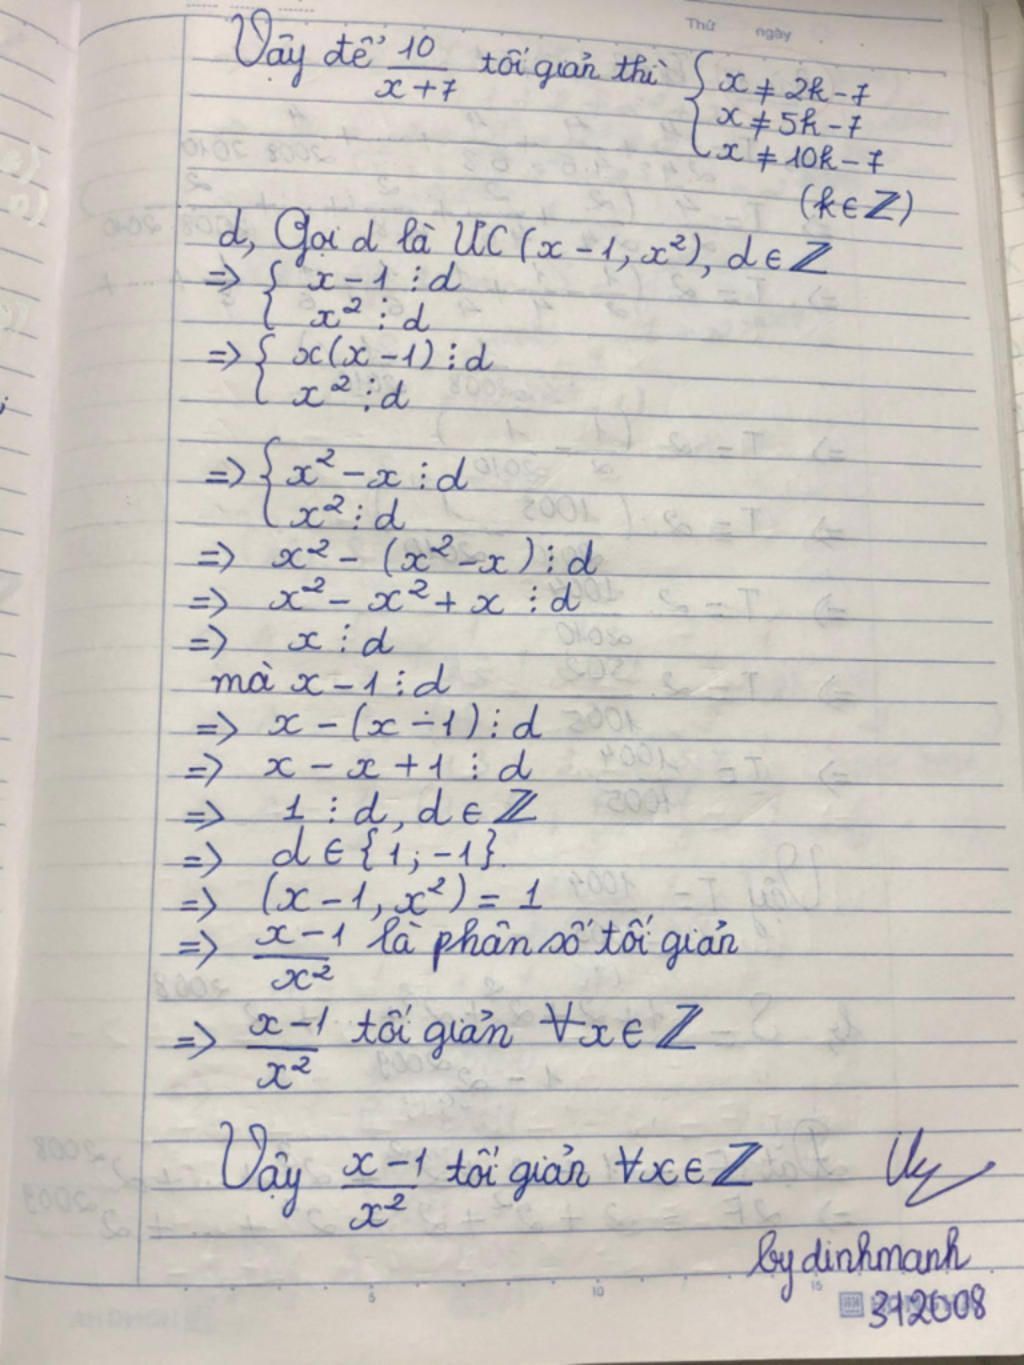 Thứ ngày
Vậy để 10/(x+7) tối giản thì { x ≠ 2k-7
x ≠ 5k-7
x ≠ 10k-7
(k∈ℤ)
d, Gọi d là ƯC(x-1, x²), d∈ℤ
=> { x-1 ⋮ d
x² ⋮ d
=> { x(x-1) ⋮ d
x² ⋮ d
=> { x²-x ⋮ d
x² ⋮ d
=> x² - (x²-x) ⋮ d
=> x² - x² + x ⋮ d
=> x ⋮ d
mà x-1 ⋮ d
=> x - (x-1) ⋮ d
=> x - x + 1 ⋮ d
=> 1 ⋮ d, d∈ℤ
=> d∈{1; -1}
=> (x-1, x²) = 1
=> (x-1)/x² là phân số tối giản
=> (x-1)/x² tối giản ∀x∈ℤ
Vậy (x-1)/x² tối giản ∀x∈ℤ
by dinhmanh
312008
5 10 15